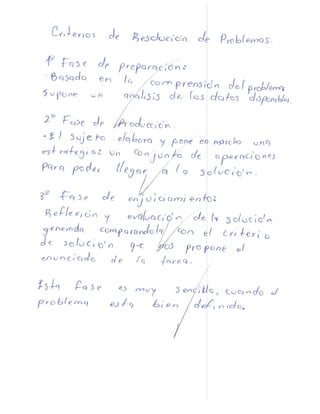 Criterios de Resolución de Problemas.
1º Fase de preparación:
· Basada en la comprensión del problema
Supone un análisis de los datos disponibles.
2º Fase de Producción.
· El sujeto elabora y pone en marcha una
estrategia: un conjunto de operaciones
para poder llegar a la solución.
3º Fase de enjuiciamiento:
Reflexión y evaluación de la solución
generada comparandola con el criterio
de solución que nos propone el
enunciado de la tarea.
Esta fase es muy sencilla, cuando el
problema esta bien definido.